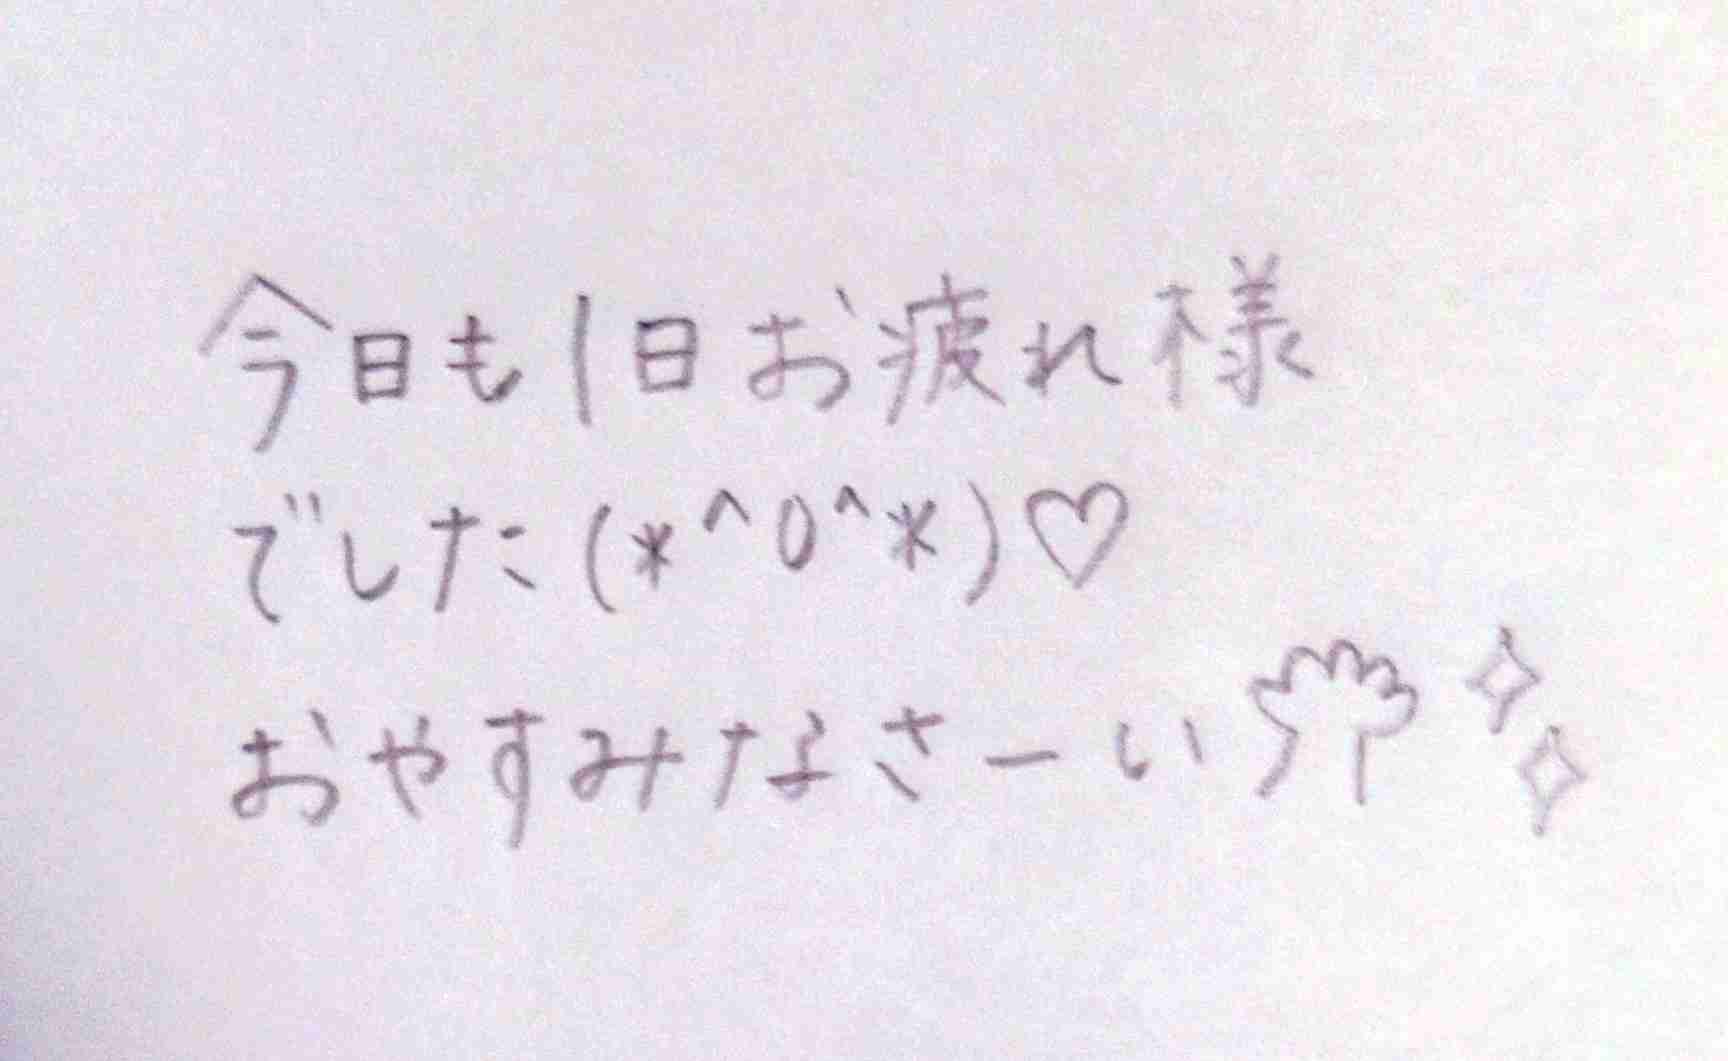 今日も1日お疲れ様
でした(*^0^*)♡
おやすみなさーい